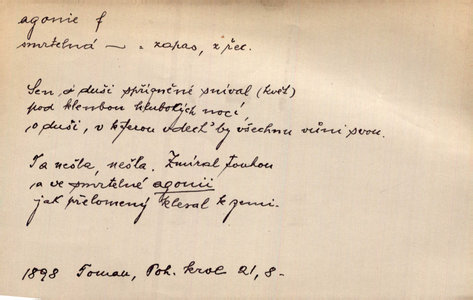 agonie f
smrtelná — : zápas, z řec.
Sen o duši spřízněné sníval (květ)
pod klenbou hlubokých nocí,
o duši, v kterou vdech' by všechnu vůni svou.
Ta nešla, nešla. Zmíral touhou
a ve smrtelné agonii
jak přelomený klesal k zemi.
1898 Toman, Poh. krve 21, 8 -